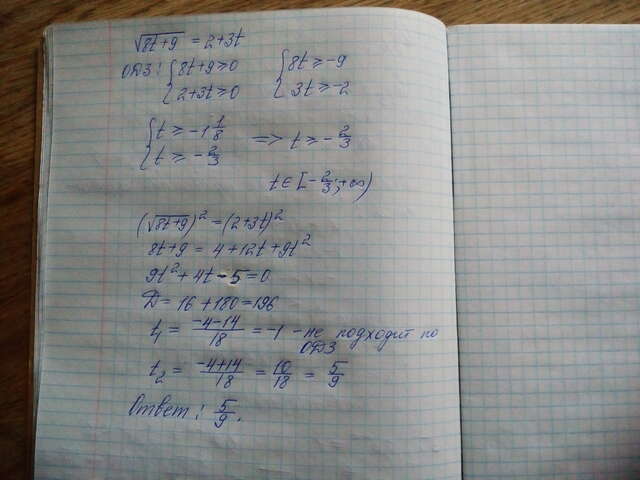 √8t+9 = 2+3t
ОДЗ: { 8t+9 ≥ 0 { 8t ≥ -9
2+3t ≥ 0 3t ≥ -2
{ t ≥ -1 1/8
t ≥ -2/3 => t ≥ -2/3
t ∈ [-2/3; +∞)
(√8t+9)² = (2+3t)²
8t+9 = 4+12t+9t²
9t²+4t-5=0
D = 16+180=196
t₁ = -4-14/18 = -1 - не подходит по
ОДЗ
t₂ = -4+14/18 = 10/18 = 5/9
Ответ: 5/9.